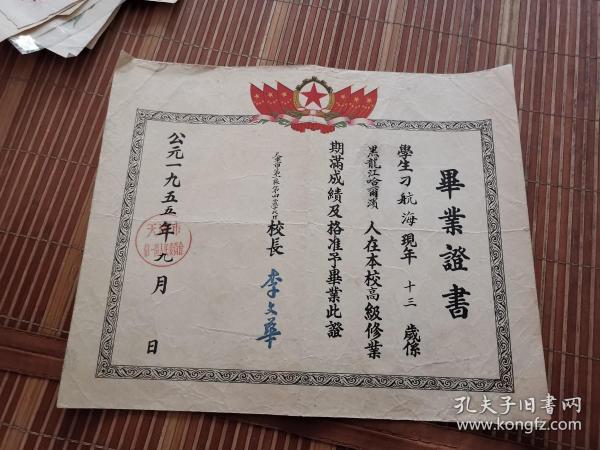 畢業證書
學生刁航海現年十三歲係
黑龍江哈爾濱人在本校高級修業
期滿成績及格准予畢業此證
校長 李文華
公元一九五五年九月 日
天津市
孔夫子旧书网
www.kongfz.com